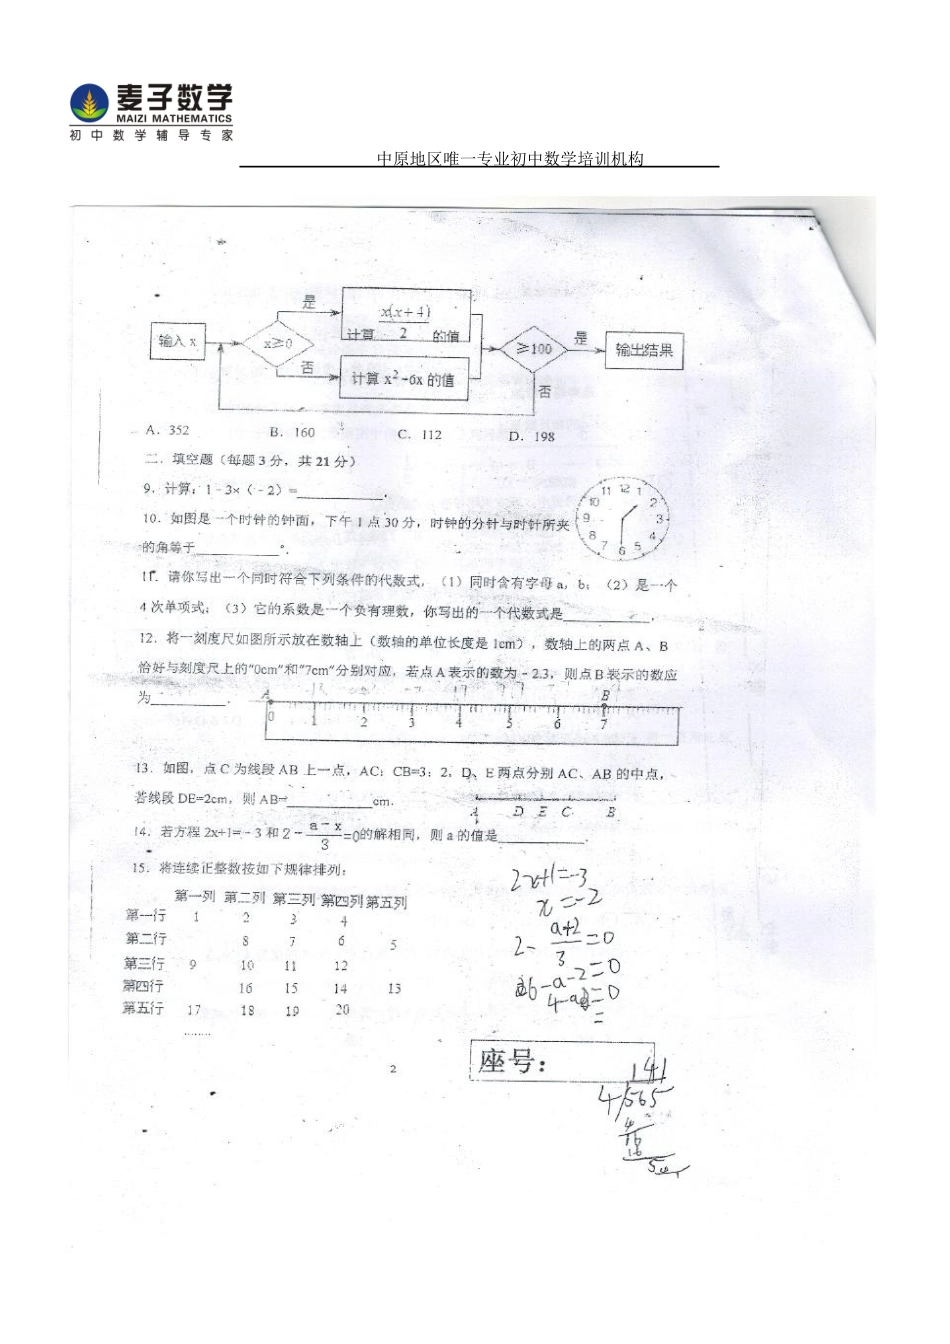 麦子数学
MAIZI MATHEMATICS
初中数学辅导专家
中原地区唯一专业初中数学培训机构
输入 x
x≥0
是
计算 x(x+4)/2 的值
否
计算 x²-6x 的值
≥100
是
输出结果
否
A. 352 B. 160 C. 112 D. 198
二. 填空题（每题 3 分，共 21 分）
9. 计算：1-3×（-2）=________.
10. 如图是一个时钟的钟面，下午 1 点 30 分，时钟的分针与时针所夹
的角等于________°.
11 12 1 2 3 4 5 6 7 8 9 10
11. 请你写出一个同时符合下列条件的代数式，（1）同时含有字母 a，b；（2）是一个
4 次单项式；（3）它的系数是一个负有理数，你写出的一个代数式是________.
12. 将一刻度尺如图所示放在数轴上（数轴的单位长度是 1cm），数轴上的两点 A、B
恰好与刻度尺上的"0cm"和"7cm"分别对应，若点 A 表示的数为 - 2.3，则点 B 表示的数应
为________.
A B
0 1 2 3 4 5 6 7
13. 如图，点 C 为线段 AB 上一点，AC：CB=3：2，D、E 两点分别 AC、AB 的中点，
若线段 DE=2cm，则 AB=________cm.
A D E C B
14. 若方程 2x+1=-3 和 2-(a-x)/3=0的解相同，则 a 的值是________.
15. 将连续正整数按如下规律排列：
第一列 第二列 第三列 第四列 第五列
第一行 1 2 3 4
第二行 8 7 6 5
第三行 9 10 11 12
第四行 16 15 14 13
第五行 17 18 19 20
………
2x+1=-3
x=-2
2- (a+2)/3 =0
6-a-2=0
2
座号：
141
4/565
4
16
16
5